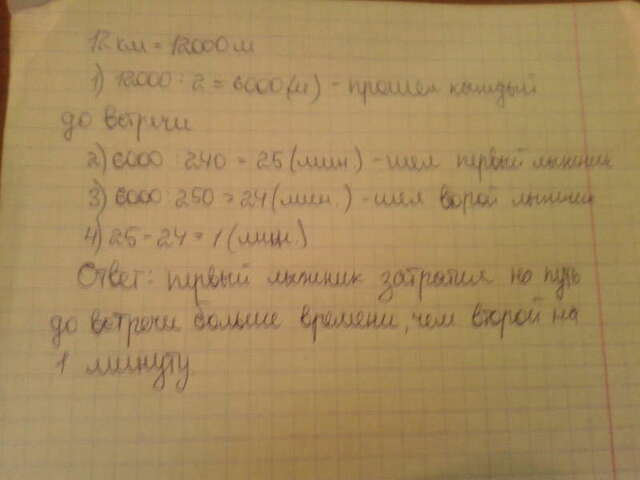 12 км = 12000 м
1) 12000 : 2 = 6000 (м) - прошел каждый
до встречи
2) 6000 : 240 = 25 (мин) - шел первый лыжник
3) 6000 : 250 = 24 (мин.) - шел ворой лыжник
4) 25 - 24 = 1 (мин.)
Ответ: первый лыжник затратил на путь
до встречи больше времени, чем второй на
1 минуту